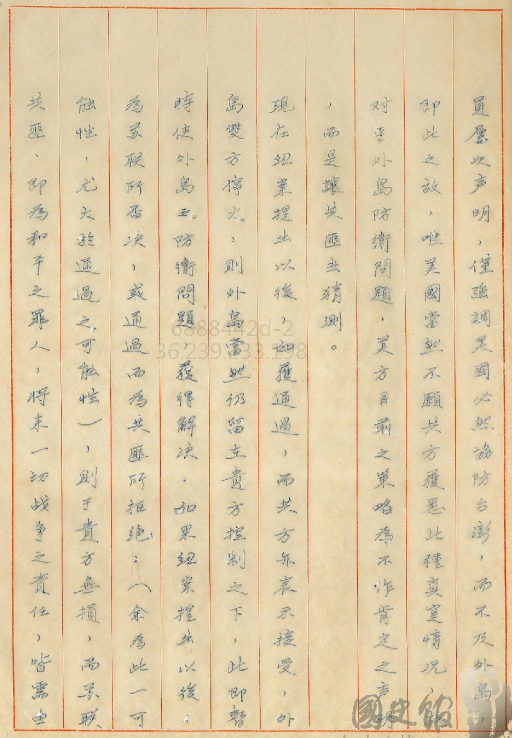 員屢次声明，僅強調美國必然協防台澎，而不及外島，
即此之故，唯美國當然不願共方獲悉此種真実情况，
对于外島防衛問題，美方目前之策略為不作肯定之声明
，而是讓共匪去猜測。
現在紐案提出以後，如獲通過，而共方亦表示接受，外
島雙方停火，則外島當然仍留在貴方控制之下，此即暫
時使外島之防衛問題，獲得解决，如果紐案提出以後，
為苏联所否决，或通過而為共匪所拒絶：（余為此一可
能性，尤大於通過之可能性），則于貴方無損，而苏联
共匪，即為和平之罪人，将来一切战争之責任，皆需由
6888442d-2
36.239.233.198
國史館